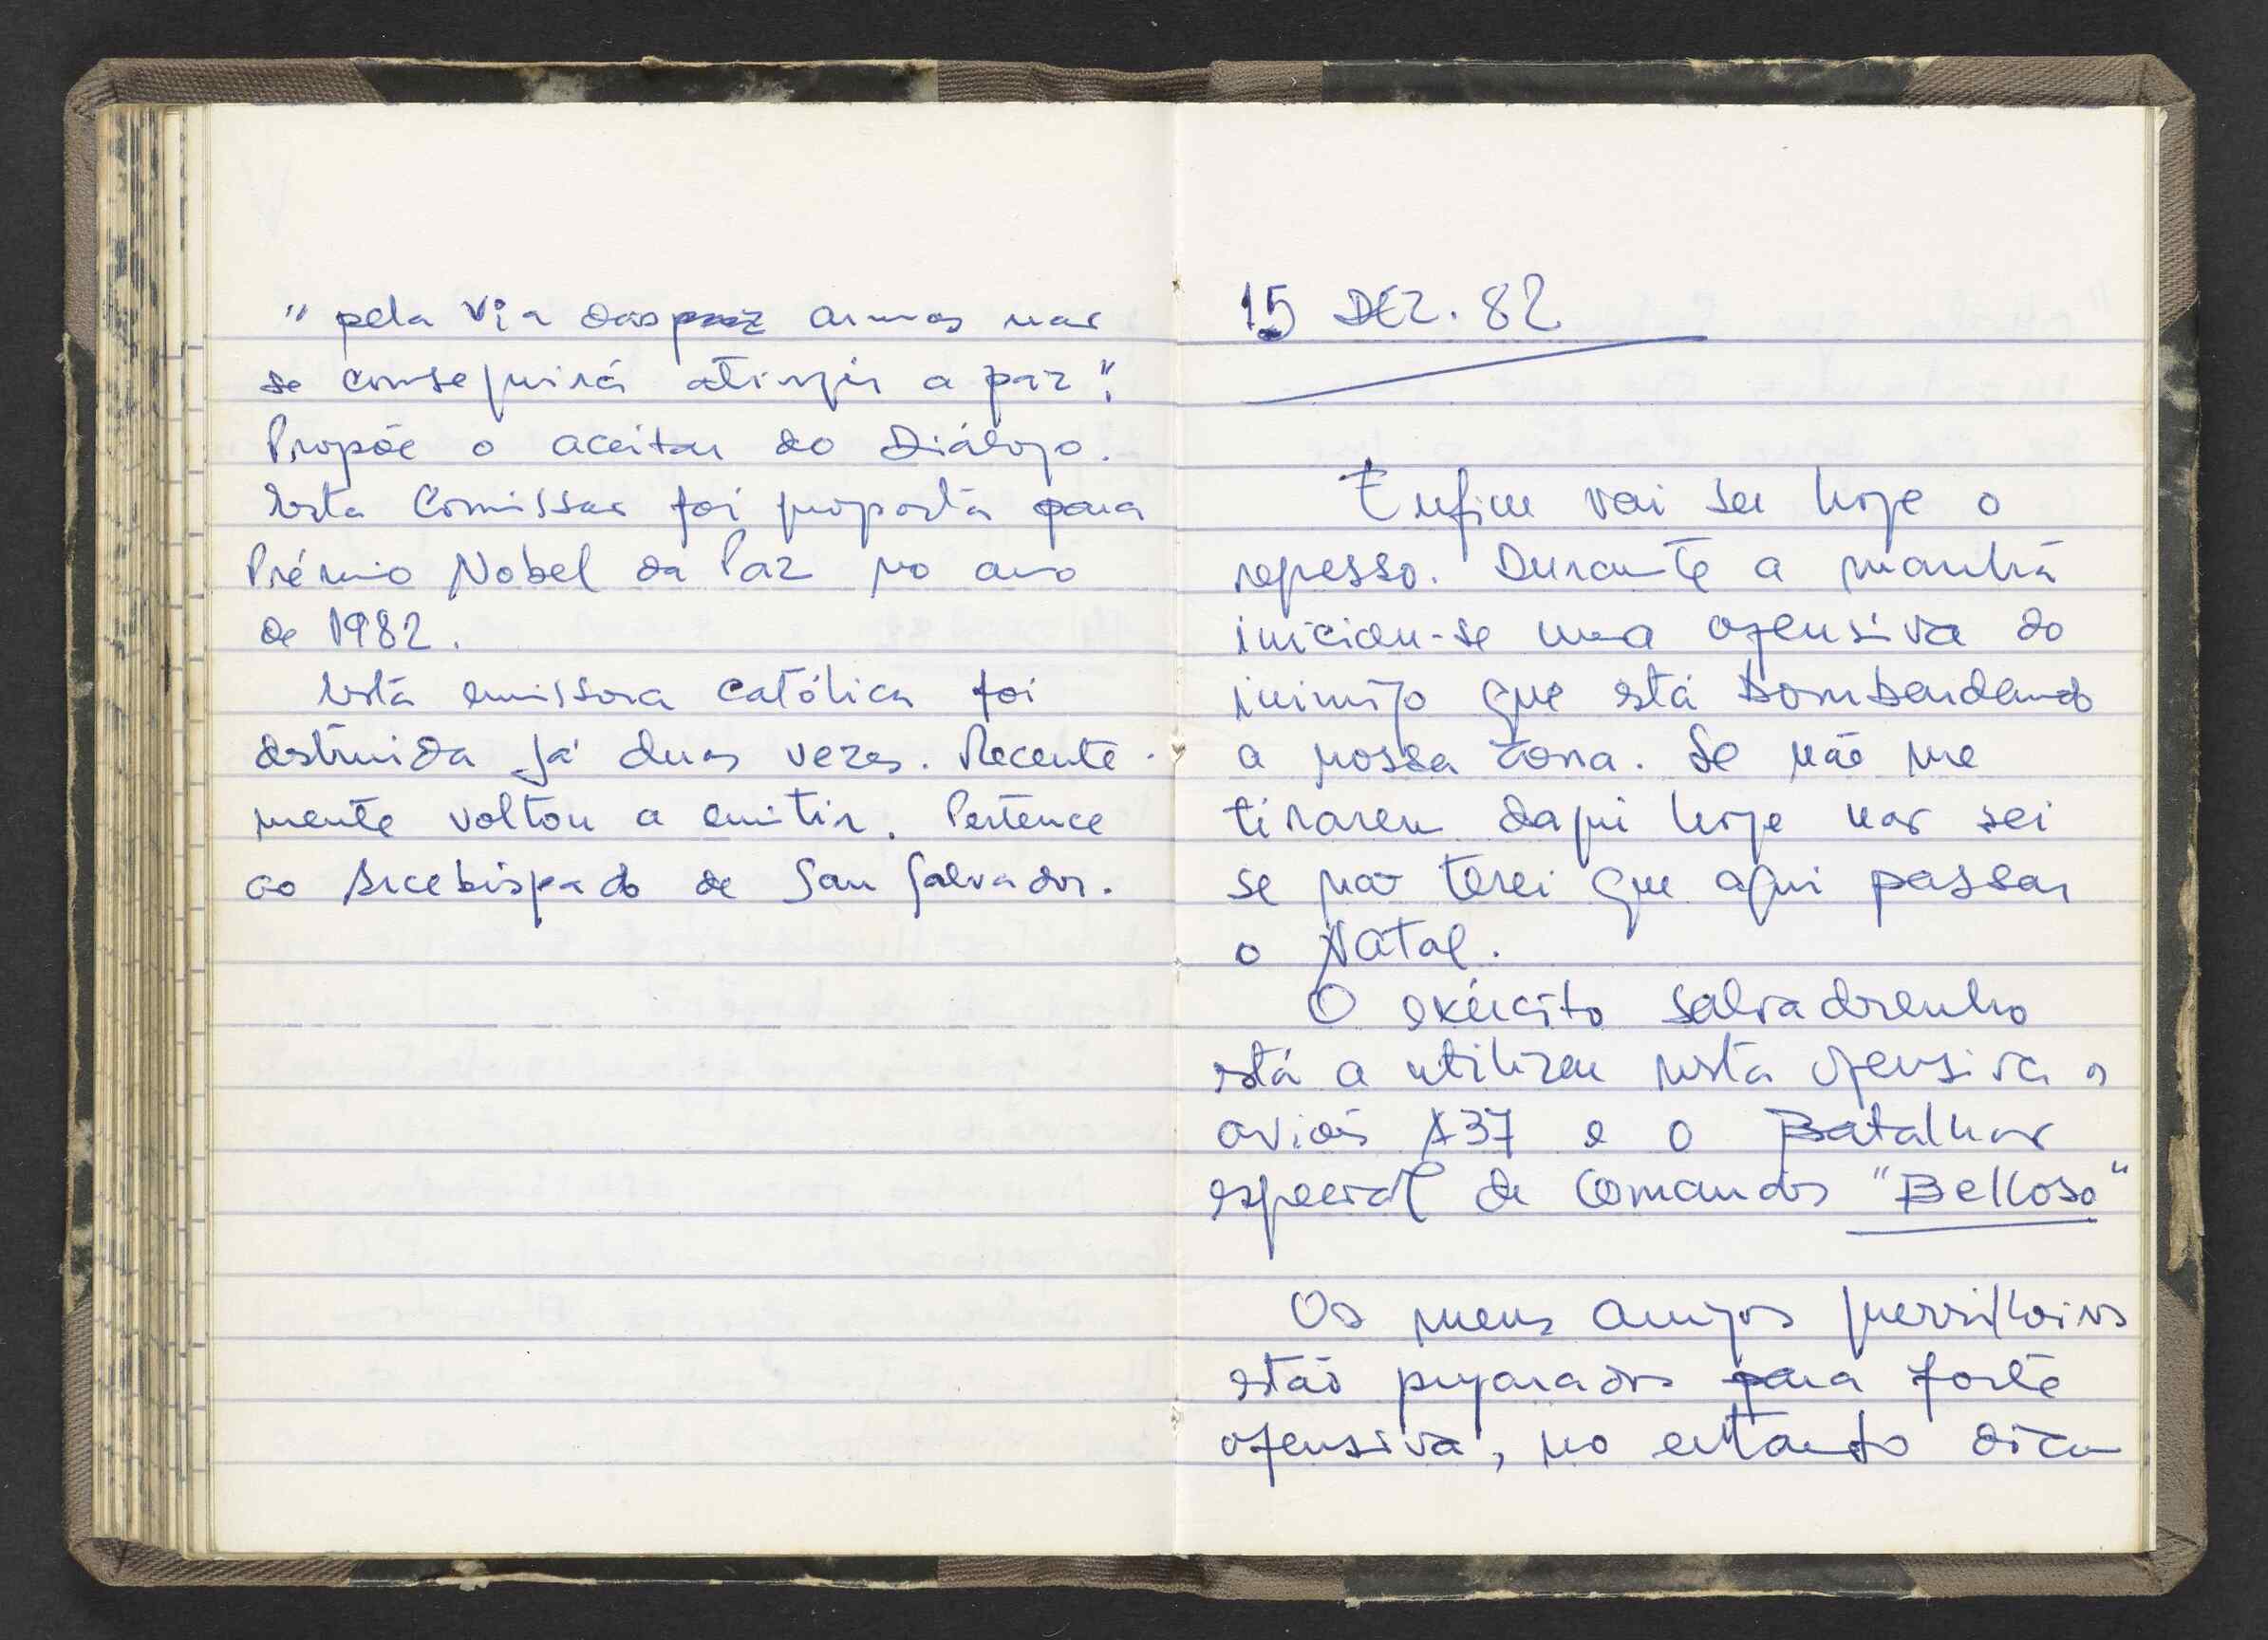 " pela via das paz armas não
se conseguirá atingir a paz".
Propõe o aceitar do Diálogo.
Esta Comissão foi proposta para
Prémio Nobel da Paz no ano
de 1982.
Esta emissora católica foi
destruida já duas vezes. Recente-
mente voltou a emitir. Pertence
ao Arcebispado de San Salvador.
15 DEZ. 82
Enfim vai ser hoje o
regresso. Durante a manhã
iniciou-se uma ofensiva do
inimigo que está bombardeando
a nossa zona. Se não me
tirarem daqui hoje não sei
se não terei que aqui passar
o Natal.
O exército salvadorenho
está a utilizar nesta ofensiva os
aviões A37 e o Batalhão
especial de Comandos "Belloso"
Os meus amigos guerrilheiros
estão preparados para forte
ofensiva, no entanto dizem